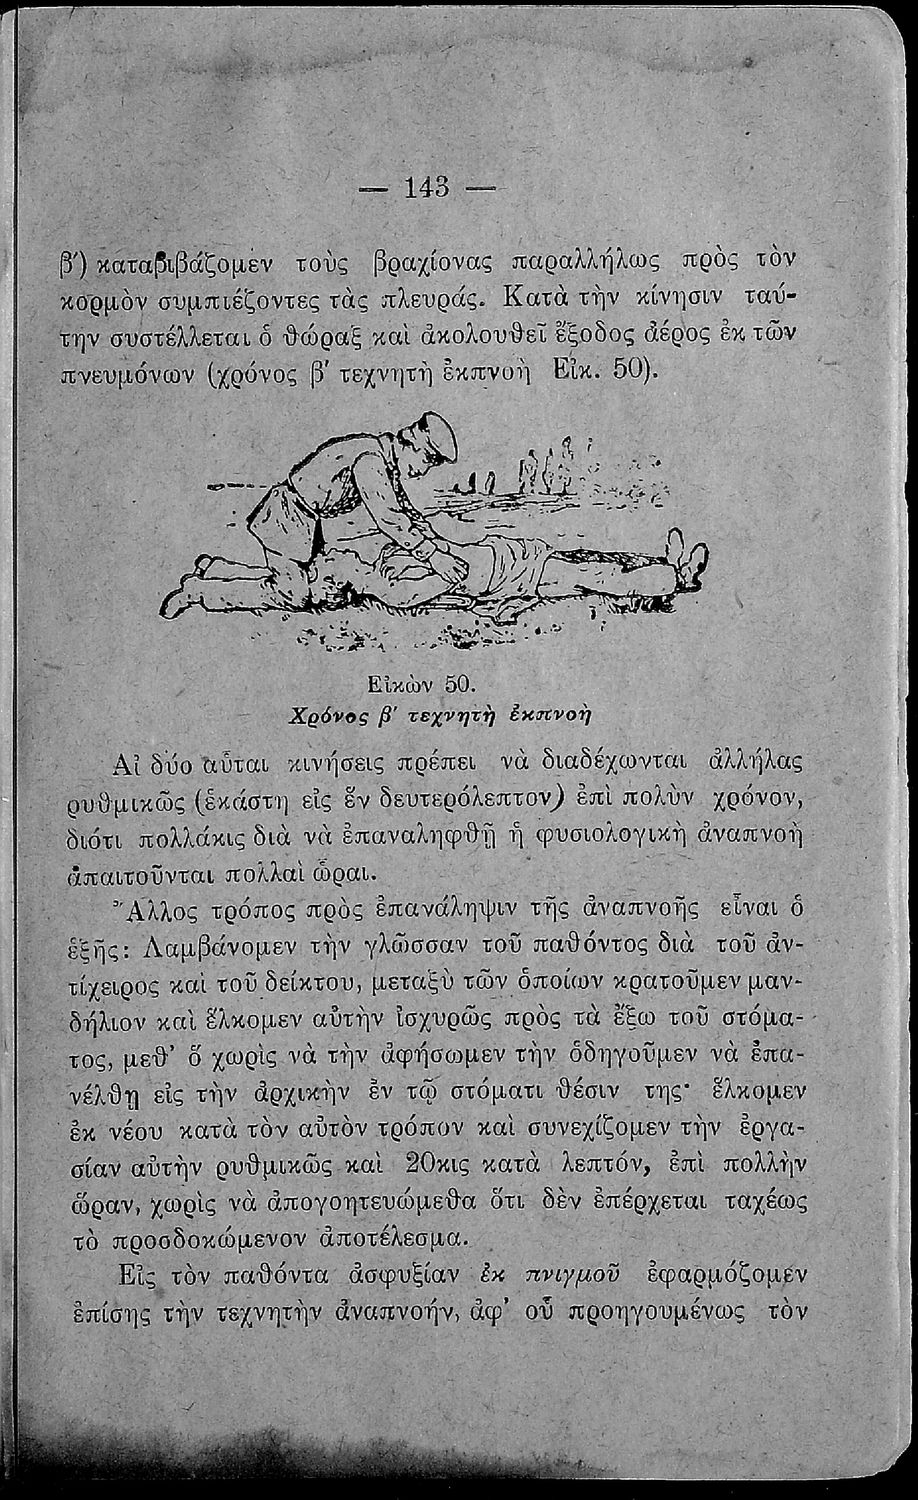 — 143 —
β') καταβιβάζομεν τοὺς βραχίονας παραλλήλως πρὸς τὸν
κορμὸν συμπιέζοντες τὰς πλευράς. Κατὰ τὴν κίνησιν ταύ-
την συστέλλεται ὁ θώραξ καὶ ἀκολουθεῖ ἔξοδος ἀέρος ἐκ τῶν
πνευμόνων (χρόνος β' τεχνητὴ ἐκπνοὴ Εἰκ. 50).
Εἰκὼν 50.
Χρόνος β' τεχνητὴ ἐκπνοὴ
Αἱ δύο αὗται κινήσεις πρέπει νὰ διαδέχωνται ἀλλήλας
ρυθμικῶς (ἑκάστη εἰς ἓν δευτερόλεπτον) ἐπὶ πολὺν χρόνον,
διότι πολλάκις διὰ νὰ ἐπαναληφθῇ ἡ φυσιολογικὴ ἀναπνοὴ
ἀπαιτοῦνται πολλαὶ ὧραι.
Ἄλλος τρόπος πρὸς ἐπανάληψιν τῆς ἀναπνοῆς εἶναι ὁ
ἑξῆς: Λαμβάνομεν τὴν γλῶσσαν τοῦ παθόντος διὰ τοῦ ἀν-
τίχειρος καὶ τοῦ δείκτου, μεταξὺ τῶν ὁποίων κρατοῦμεν μαν-
δήλιον καὶ ἕλκομεν αὐτὴν ἰσχυρῶς πρὸς τὰ ἔξω τοῦ στόμα-
τος, μεθ' ὃ χωρὶς νὰ τὴν ἀφήσωμεν τὴν ὁδηγοῦμεν νὰ ἐπα-
νέλθῃ εἰς τὴν ἀρχικὴν ἐν τῷ στόματι θέσιν της· ἕλκομεν
ἐκ νέου κατὰ τὸν αὐτὸν τρόπον καὶ συνεχίζομεν τὴν ἐργα-
σίαν αὐτὴν ρυθμικῶς καὶ 20κις κατὰ λεπτόν, ἐπὶ πολλὴν
ὥραν, χωρὶς νὰ ἀπογοητευώμεθα ὅτι δὲν ἐπέρχεται ταχέως
τὸ προσδοκώμενον ἀποτέλεσμα.
Εἰς τὸν παθόντα ἀσφυξίαν ἐκ πνιγμοῦ ἐφαρμόζομεν
ἐπίσης τὴν τεχνητὴν ἀναπνοήν, ἀφ' οὗ προηγουμένως τὸν